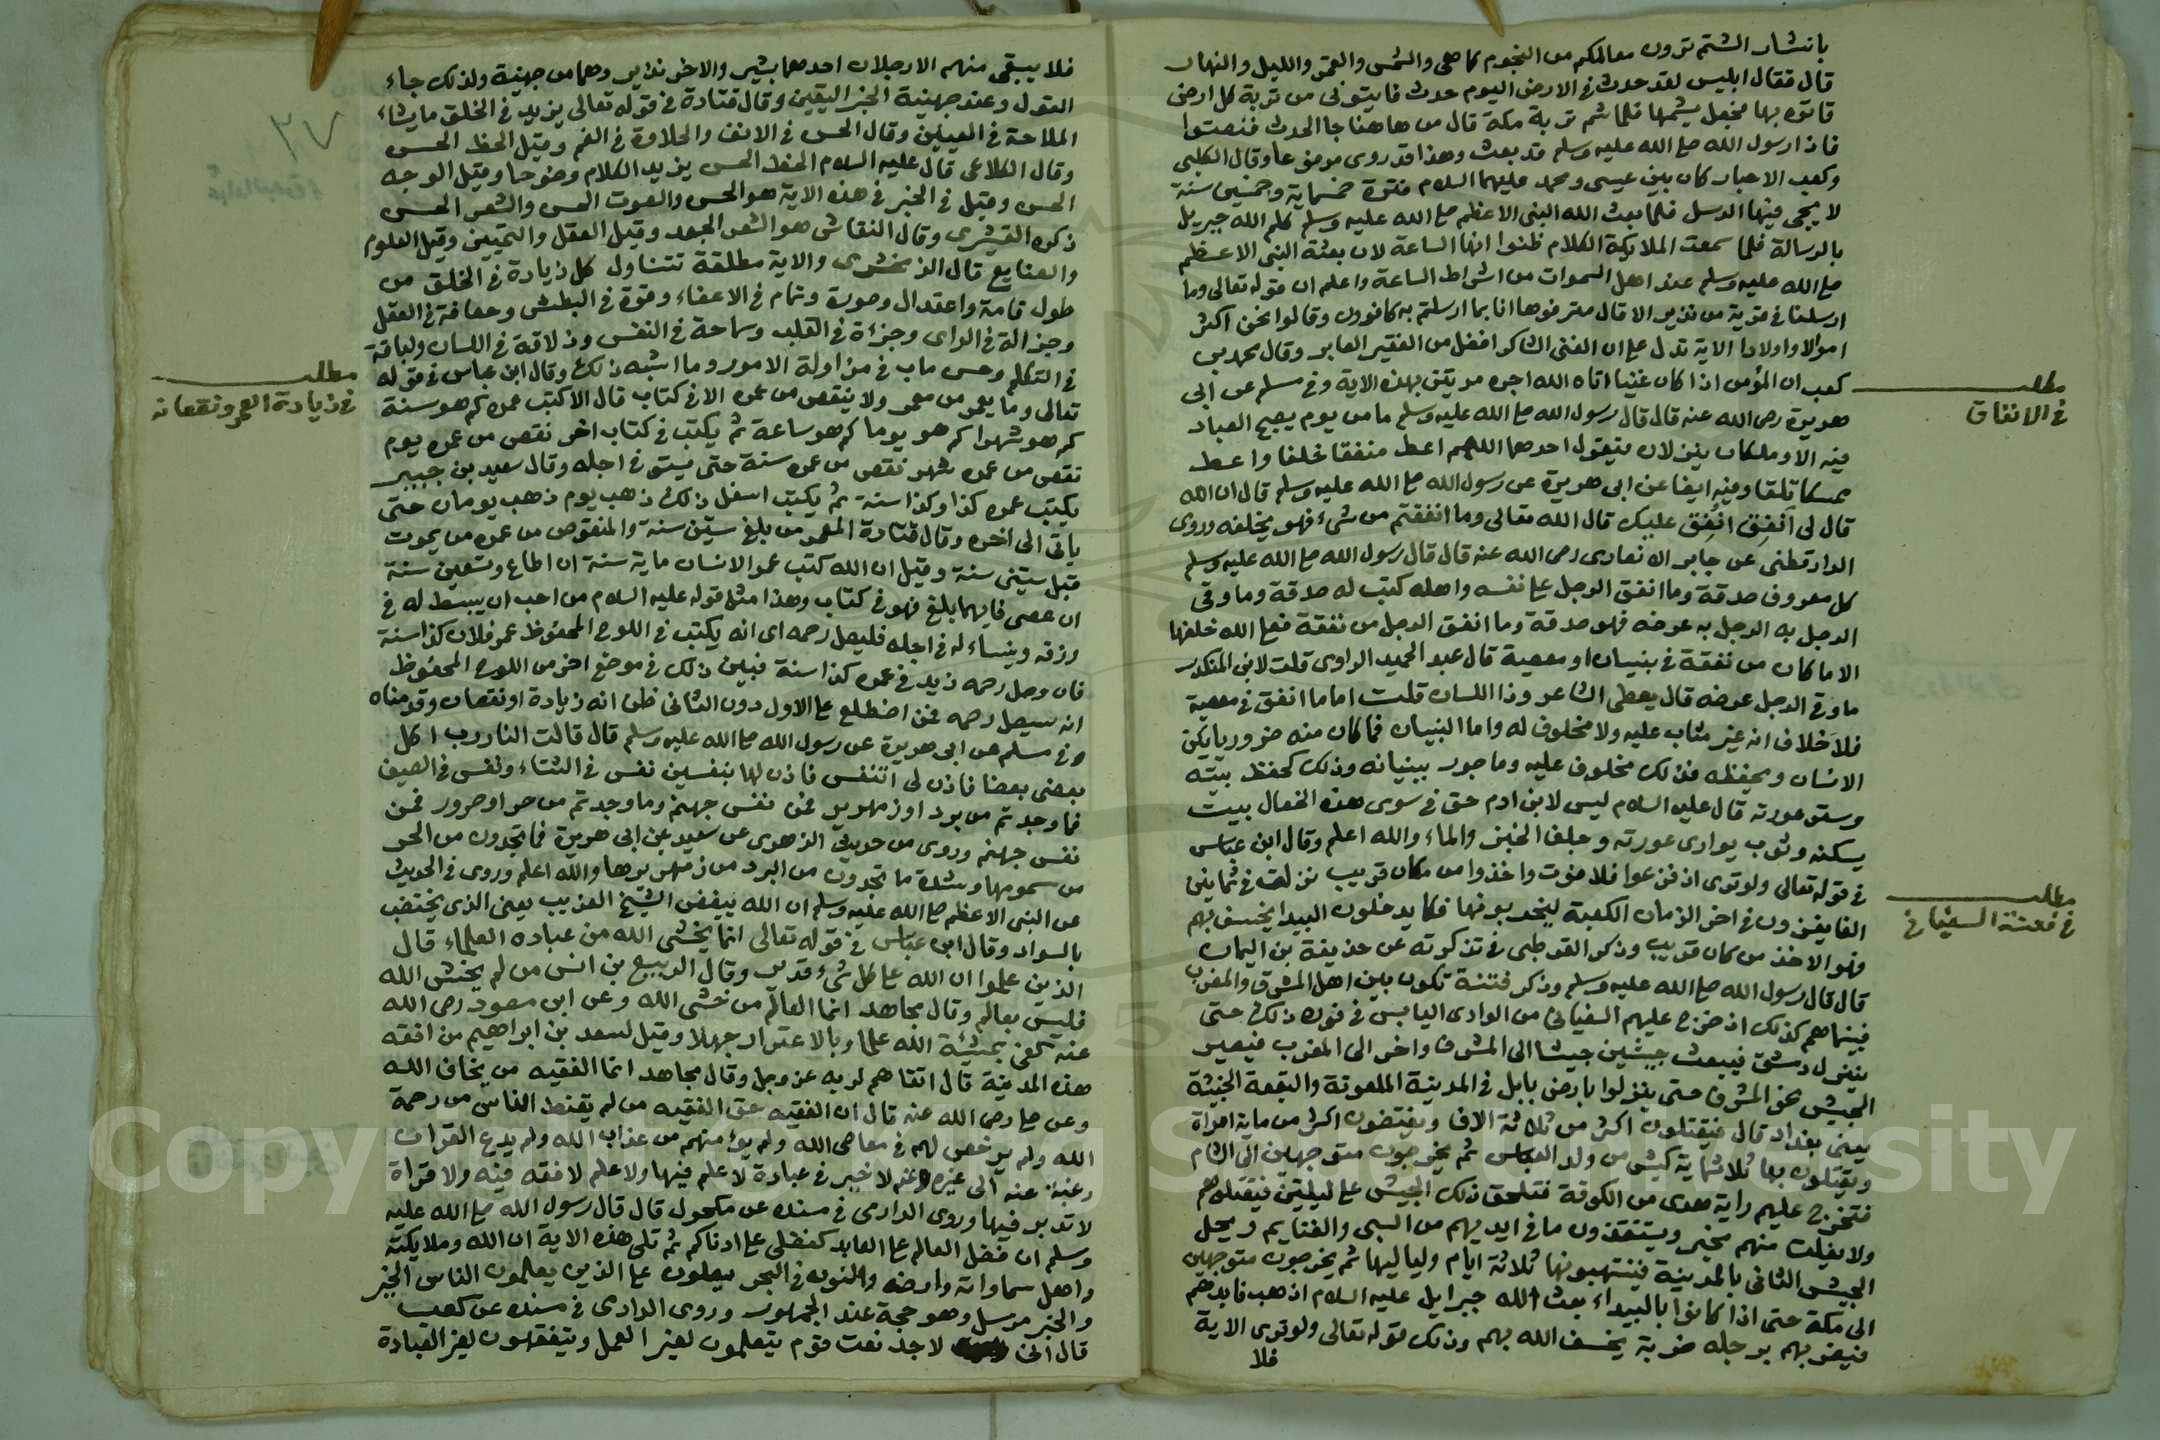 بانتشار الشتم ترون معالمكم من النجوم كما هي والشمس والقمر والليل والنهار
قال فقال ابليس لقد حدث في الارض اليوم حدث فايتوني من تربة كل ارض
فاتوه بها فجعل يشمها فلما شم تربة مكة قال من هاهنا جا الحدث فنصتوا
فاذا رسول الله صلع الله عليه وسلم قد بعث وهذا قد روى مرفوعا وقال الكلبي
وكعب الاحبار كان بين عيسى ومحمد عليهما السلام فترة خمسماية وخمسين سنة
لا يجي فيها الرسل فلما بعث الله النبي الاعظم صلع الله عليه وسلم كلم الله جبريل
بالرسالة فلما سمعت الملايكة الكلام ظنوا انها الساعة لان بعثة النبي الاعظم
صلع الله عليه وسلم عند اهل السموات من اشراط الساعة واعلم ان قوله تعالى وما
ارسلنا في قرية من نذير الا قال مترفوها انا بما ارسلتم به كافرون وقالوا نحن اكثر
اموالا واولادا الاية تدل على ان الغني الشاكر افضل من الفقير الصابر وقال محمد بن
كعب ان المؤمن اذا كان غنيا اتاه الله اجره مرتين بهذه الاية وفي مسلم عن ابي
هريرة رضى الله عنه قال قال رسول الله صلع الله عليه وسلم ما من يوم يصبح العباد
فيه الا وملكان ينزلان فيقول احدهما اللهم اعط منفقا خلفا واعط
ممسكا تلفا وفيه ايضا عن ابي هريرة عن رسول الله صلع الله عليه وسلم قال ان الله
قال لي اَنْفِقْ اُنْفِق عليك قال الله تعالى وما انفقتم من شيء فهو يخلفه وروى
الدارقطني عن جابر الانصارى رضى الله عنه قال قال رسول الله صلع الله عليه وسلم
كل معروف صدقة وما انفق الرجل على نفسه واهله كتب له صدقة وما وقى
الرجل به الرجل به عرضه فهو صدقة وما انفق الرجل من نفقة فعلى الله خلفها
الا ما كان من نفقة في بنيان او معصية قال عبد الحميد الراوى قلت لابن المنكدر
ما وقى الرجل عرضه قال يعطى الشاعر وذا اللسان قلت اما ما انفق في معصية
فلا خلاف انه غير مثاب عليه ولا مخلوف له واما البنيان فما كان منه ضروريا يكن
الانسان ويحفظه فذلك مخلوف عليه وماجور ببنيانه وذلك كحفظ بيته
وستر عورته قال عليه السلام ليس لابن ادم حق في سوى هذه الخصال بيت
يسكنه وثوب يوارى عورته وجلف الخبز والماء والله اعلم وقال ابن عباس
في قوله تعالى ولو ترى اذ فزعوا فلا فوت واخذوا من مكان قريب نزلت في ثمانين
الفا يغزون في اخر الزمان الكعبة ليخربونها فكما يدخلون البيدا يخسف بهم
فهو الاخذ من مكان قريب وذكر القرطبي في تذكرته عن حذيفة بن اليمان
قال قال رسول الله صلع الله عليه وسلم وذكر فتنة تكون بين اهل المشرق والمغرب
فبينماهم كذلك اذ خرج عليهم السفياني من الوادى اليابس في فوره ذلك حتى
ينزل دمشق فيبعث جيشين جيشا الى المشرق واخر الى المغرب فيسير
الجيش نحو المشرق حتى ينزلوا بارض بابل في المدينة الملعونة والبقعة الخبيثة
يعني بغداد قال فيقتلون اكثر من ثلاثة الاف ويفتضون اكثر من ماية امراة
ويقتلون بها ثلاثماية كبش من ولد العباس ثم يخرجون متوجهين الى الشام
فتخرج عليهم راية هدى من الكوفة فتلحق ذلك الجيش على ليلتين فيقتلوهم
ولا يفلت منهم مخبر ويستنقذون ما في ايديهم من السبي والغنايم ويحل
الجيش الثاني بالمدينة فينتهبونها ثلاثة ايام ولياليها ثم يخرجون متوجهين
الى مكة حتى اذا كانوا بالبيداء بعث الله جبرايل عليه السلام اذهب فابدهم
فيضربهم برجله ضربة يخسف الله بهم وذلك قوله تعالى ولو ترى الاية
فلا
مطلب
في الانفاق
مطلب
في فتنة السفياني
فلا يبقى منهم الا رجلان احدهما بشير والاخر نذير وهما من جهينة ولذلك جاء
القول وعند جهينة الخبر اليقين وقال قتادة في قوله تعالى يزيد في الخلق ما يشاء
الملاحة في العينين وقال الحس في الانف والحلاوة في الفم وقيل الحظ الحس
وقال الكلاعى قال عليه السلام الخط الحس يزيد الكلام وضوحا وقيل الوجه
الحس وقيل في الخبر في هذه الاية هو الحس والصوت الحس والشعر الحس
ذكره القشيرى وقال النقاش هو الشعر الجعد وقيل العقل والتمييز وقيل العلوم
والصنايع قال الزمخشرى والاية مطلقة تتناول كل زيادة في الخلق من
طول قامة واعتدال وصورة وتمام في الاعضاء وقوة في البطش وحصافة في العقل
وجزالة في الراى وجرءة في القلب وسماحة في النفس وذلاقة في اللسان ولباقة
في التكلم وحس ماب في مزاولة الامور وما اشبه ذلك وقال ابن عباس في قوله
تعالى وما يعمر من معمر ولا ينقص من عمره الا في كتاب قال الا كتب عمره كم هو سنة
كم هو شهرا كم هو يوما كم هو ساعة ثم يكتب في كتاب اخر نقص من عمره يوم
نقص من عمره شهر نقص من عمره سنة حتى يستوفي اجله وقال سعيد بن جبير
يكتب عمره كذا وكذا سنة ثم يكتب اسفل ذلك ذهب يوم ذهب يومان حتى
ياتي الى اخره وقال قتادة المعمر من بلغ ستين سنة والمنقوص من عمره من يموت
قبل ستين سنة وقيل ان الله كتب عمر الانسان ماية سنة ان اطاع وتسعين سنة
ان عصى فايهما بلغ فهو في كتاب وهذا مثل قوله عليه السلام من احب ان يبسط له في
رزقه وينساء له في اجله فليصل رحمه اى انه يكتب في اللوح المحفوظ عمر فلان كذا سنة
فان وصل رحمه زيد في عمره كذا سنة فبين ذلك في موضع اخر من اللوح المحفوظ
انه سيصل رحمه فمن اضطلع على الاول دون الثاني ظن انه زيادة او نقصان وقدمناه
وفي مسلم عن ابي هريرة عن رسول الله صلع الله عليه وسلم قال قالت النار رب اكل
بعضي بعضا فاذن لي اتنفس فاذن لها بنفسين نفس في الشتاء ونفس في الصيف
فما وجدتم من برد او زمهرير فمن نفس جهنم وما وجدتم من حر او حرور فمن
نفس جهنم وروى من حديث الزهرى عن سعيد عن ابي هريرة فما تجدون من الحر
من سمومها وشدة ما تجدون من البرد من زمهريرها والله اعلم وروى في الحديث
عن النبي الاعظم صلع الله عليه وسلم ان الله يبغض الشيخ الغربيب يعني الذى يخضب
بالسواد وقال ابن عباس في قوله تعالى انما يخشى الله من عباده العلماء قال
الذين علموا ان الله على كل شيء قدير وقال الربيع بن انس من لم يخش الله
فليس بعالم وقال مجاهد انما العالم من خشى الله وعن ابن مسعود رضى الله
عنه كفى بخشية الله علما وبالاغترار جهلا وقيل لسعد بن ابراهيم من افقه
هذه المدينة قال اتقاهم لربه عز وجل وقال مجاهد انما الفقيه من يخاف الله
وعن على رضى الله عنه قال ان الفقيه حق الفقيه من لم يقنط الناس من رحمة
الله ولم يرخص لهم في معاصى الله ولم يؤمنهم من عذاب الله ولم يدع القران
رغبة عنه الى غيره انه لا خير في عبادة لا علم فيها ولا علم لا فقه فيه ولا قراة
لا تدبر فيها وروى الدارمى في مسنده عن مكحول قال قال رسول الله صلع الله عليه
وسلم ان فضل العالم على العابد كفضلى على ادناكم ثم تلى هذه الاية ان الله وملايكته
واهل سماواته وارضه والنون في البحر يصلون على الذين يعلمون الناس الخير
والخبر مرسل وهو حجة عند الجمهور وروى الدارمى في مسنده عن كعب
قال اني لاجد نعت قوم يتعلمون لغير العمل ويتفقهون لغير العبادة
مطلب
في زيادة العمر ونقصانه
٣٧
Copyright © King Saud University